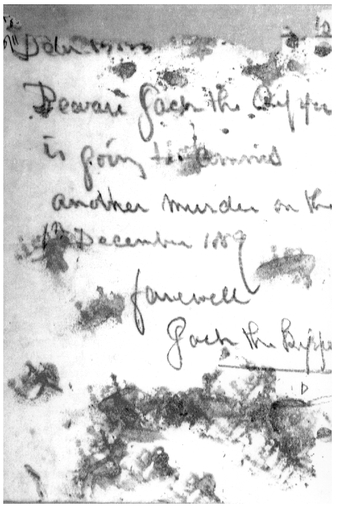 Beware Jack the Ripper
is going to commit
another murder on the
December 1889
farewell
Jack the Rippe